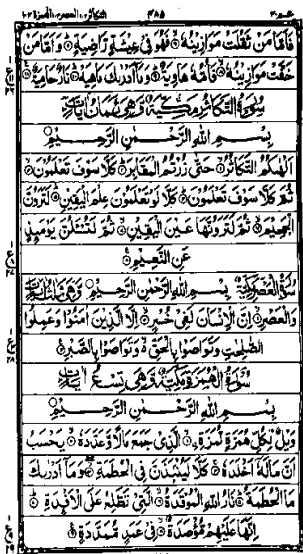 عم ٣٠ ٤٨٥ التكاثر، العصر، الهمزة ١٠٢
فَاَمَّا مَنْ ثَقُلَتْ مَوَازِيْنُهٗ فَهُوَ فِيْ عِيْشَةٍ رَّاضِيَةٍ وَاَمَّا مَنْ
خَفَّتْ مَوَازِيْنُهٗ فَاُمُّهٗ هَاوِيَةٌ وَمَا اَدْرٰىكَ مَاهِيَهْ نَارٌ حَامِيَةٌ
سُوْرَةُ التَّكَاثُرِ مَكِّيَّةٌ وَّهِيَ ثَمَانُ اٰيَاتٍ
بِسْمِ اللّٰهِ الرَّحْمٰنِ الرَّحِيْمِ
اَلْهٰىكُمُ التَّكَاثُرُ حَتّٰى زُرْتُمُ الْمَقَابِرَ كَلَّا سَوْفَ تَعْلَمُوْنَ
ثُمَّ كَلَّا سَوْفَ تَعْلَمُوْنَ كَلَّا لَوْ تَعْلَمُوْنَ عِلْمَ الْيَقِيْنِ لَتَرَوُنَّ
الْجَحِيْمَ ثُمَّ لَتَرَوُنَّهَا عَيْنَ الْيَقِيْنِ ثُمَّ لَتُسْـَٔلُنَّ يَوْمَىِٕذٍ
عَنِ النَّعِيْمِ
سُوْرَةُ الْعَصْرِ مَكِّيَّةٌ بِسْمِ اللّٰهِ الرَّحْمٰنِ الرَّحِيْمِ وَهِيَ ثَلٰثُ اٰيَاتٍ
وَالْعَصْرِ اِنَّ الْاِنْسَانَ لَفِيْ خُسْرٍ اِلَّا الَّذِيْنَ اٰمَنُوْا وَعَمِلُوا
الصّٰلِحٰتِ وَتَوَاصَوْا بِالْحَقِّ وَتَوَاصَوْا بِالصَّبْرِ
سُوْرَةُ الْهُمَزَةِ مَكِّيَّةٌ وَّهِيَ تِسْعُ اٰيَاتٍ
بِسْمِ اللّٰهِ الرَّحْمٰنِ الرَّحِيْمِ
وَيْلٌ لِّكُلِّ هُمَزَةٍ لُّمَزَةِ الَّذِيْ جَمَعَ مَالًا وَّعَدَّدَهٗ يَحْسَبُ
اَنَّ مَالَهٗٓ اَخْلَدَهٗ كَلَّا لَيُنْۢبَذَنَّ فِي الْحُطَمَةِ وَمَا اَدْرٰىكَ
مَا الْحُطَمَةُ نَارُ اللّٰهِ الْمُوْقَدَةُ الَّتِيْ تَطَّلِعُ عَلَى الْاَفْـِٕدَةِ
اِنَّهَا عَلَيْهِمْ مُّؤْصَدَةٌ فِيْ عَمَدٍ مُّمَدَّدَةٍ